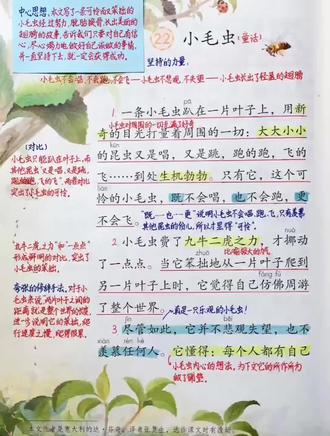 中心思想：本文写了一条可怜而又笨拙的
小毛虫经过努力，脱胎换骨，长出美丽的
翅膀的故事，告诉我们只要对自己有信
心，尽心竭力地做好自己该做的事情，
并一直坚持下去，就一定会获得成功。
22 小毛虫（童话）
坚持的力量。
小毛虫不会唱、不会跑、不会飞——小毛虫不悲观、不失望——小毛虫长出了轻盈的翅膀
pā
1 一条小毛虫趴在一片叶子上，用新
小毛虫对周围的一切充满了好奇
奇的目光打量着周围的一切：大大小小
的昆虫又是唱，又是跳，跑的跑，飞的
飞……到处生机勃勃。只有它，这个可
怜的小毛虫，既不会唱，也不会跑，更
不会飞。
（对比）
小毛虫只能趴在叶子上，而
其他昆虫“又是唱，又是跳，
跑的跑，飞的飞”，两者对比
突出了小毛虫的可怜。
2 小毛虫费了九牛二虎之力，才挪动
比喻很大的力气
了一点点。当它笨拙地从一片叶子爬到
fǎng fú
另一片叶子上时，它觉得自己仿佛周游
了整个世界。
真是一只乐观的小毛虫！
“九牛二虎之力”和“一点点”
形成鲜明的对比，突出了
小毛虫的笨拙。
夸张的修辞手法，对于小
毛虫来说，两片叶子之间的
距离就是整个世界的距离，
进一步说明它的笨拙，爬
行速度之慢，爬得很累。
bēi
3 尽管如此，它并不悲观失望，也不
xiàn rèn hé
羡慕任何人。它懂得：每个人都有自己
小毛虫内心的想法，为下文它的所作所为
做了铺垫。